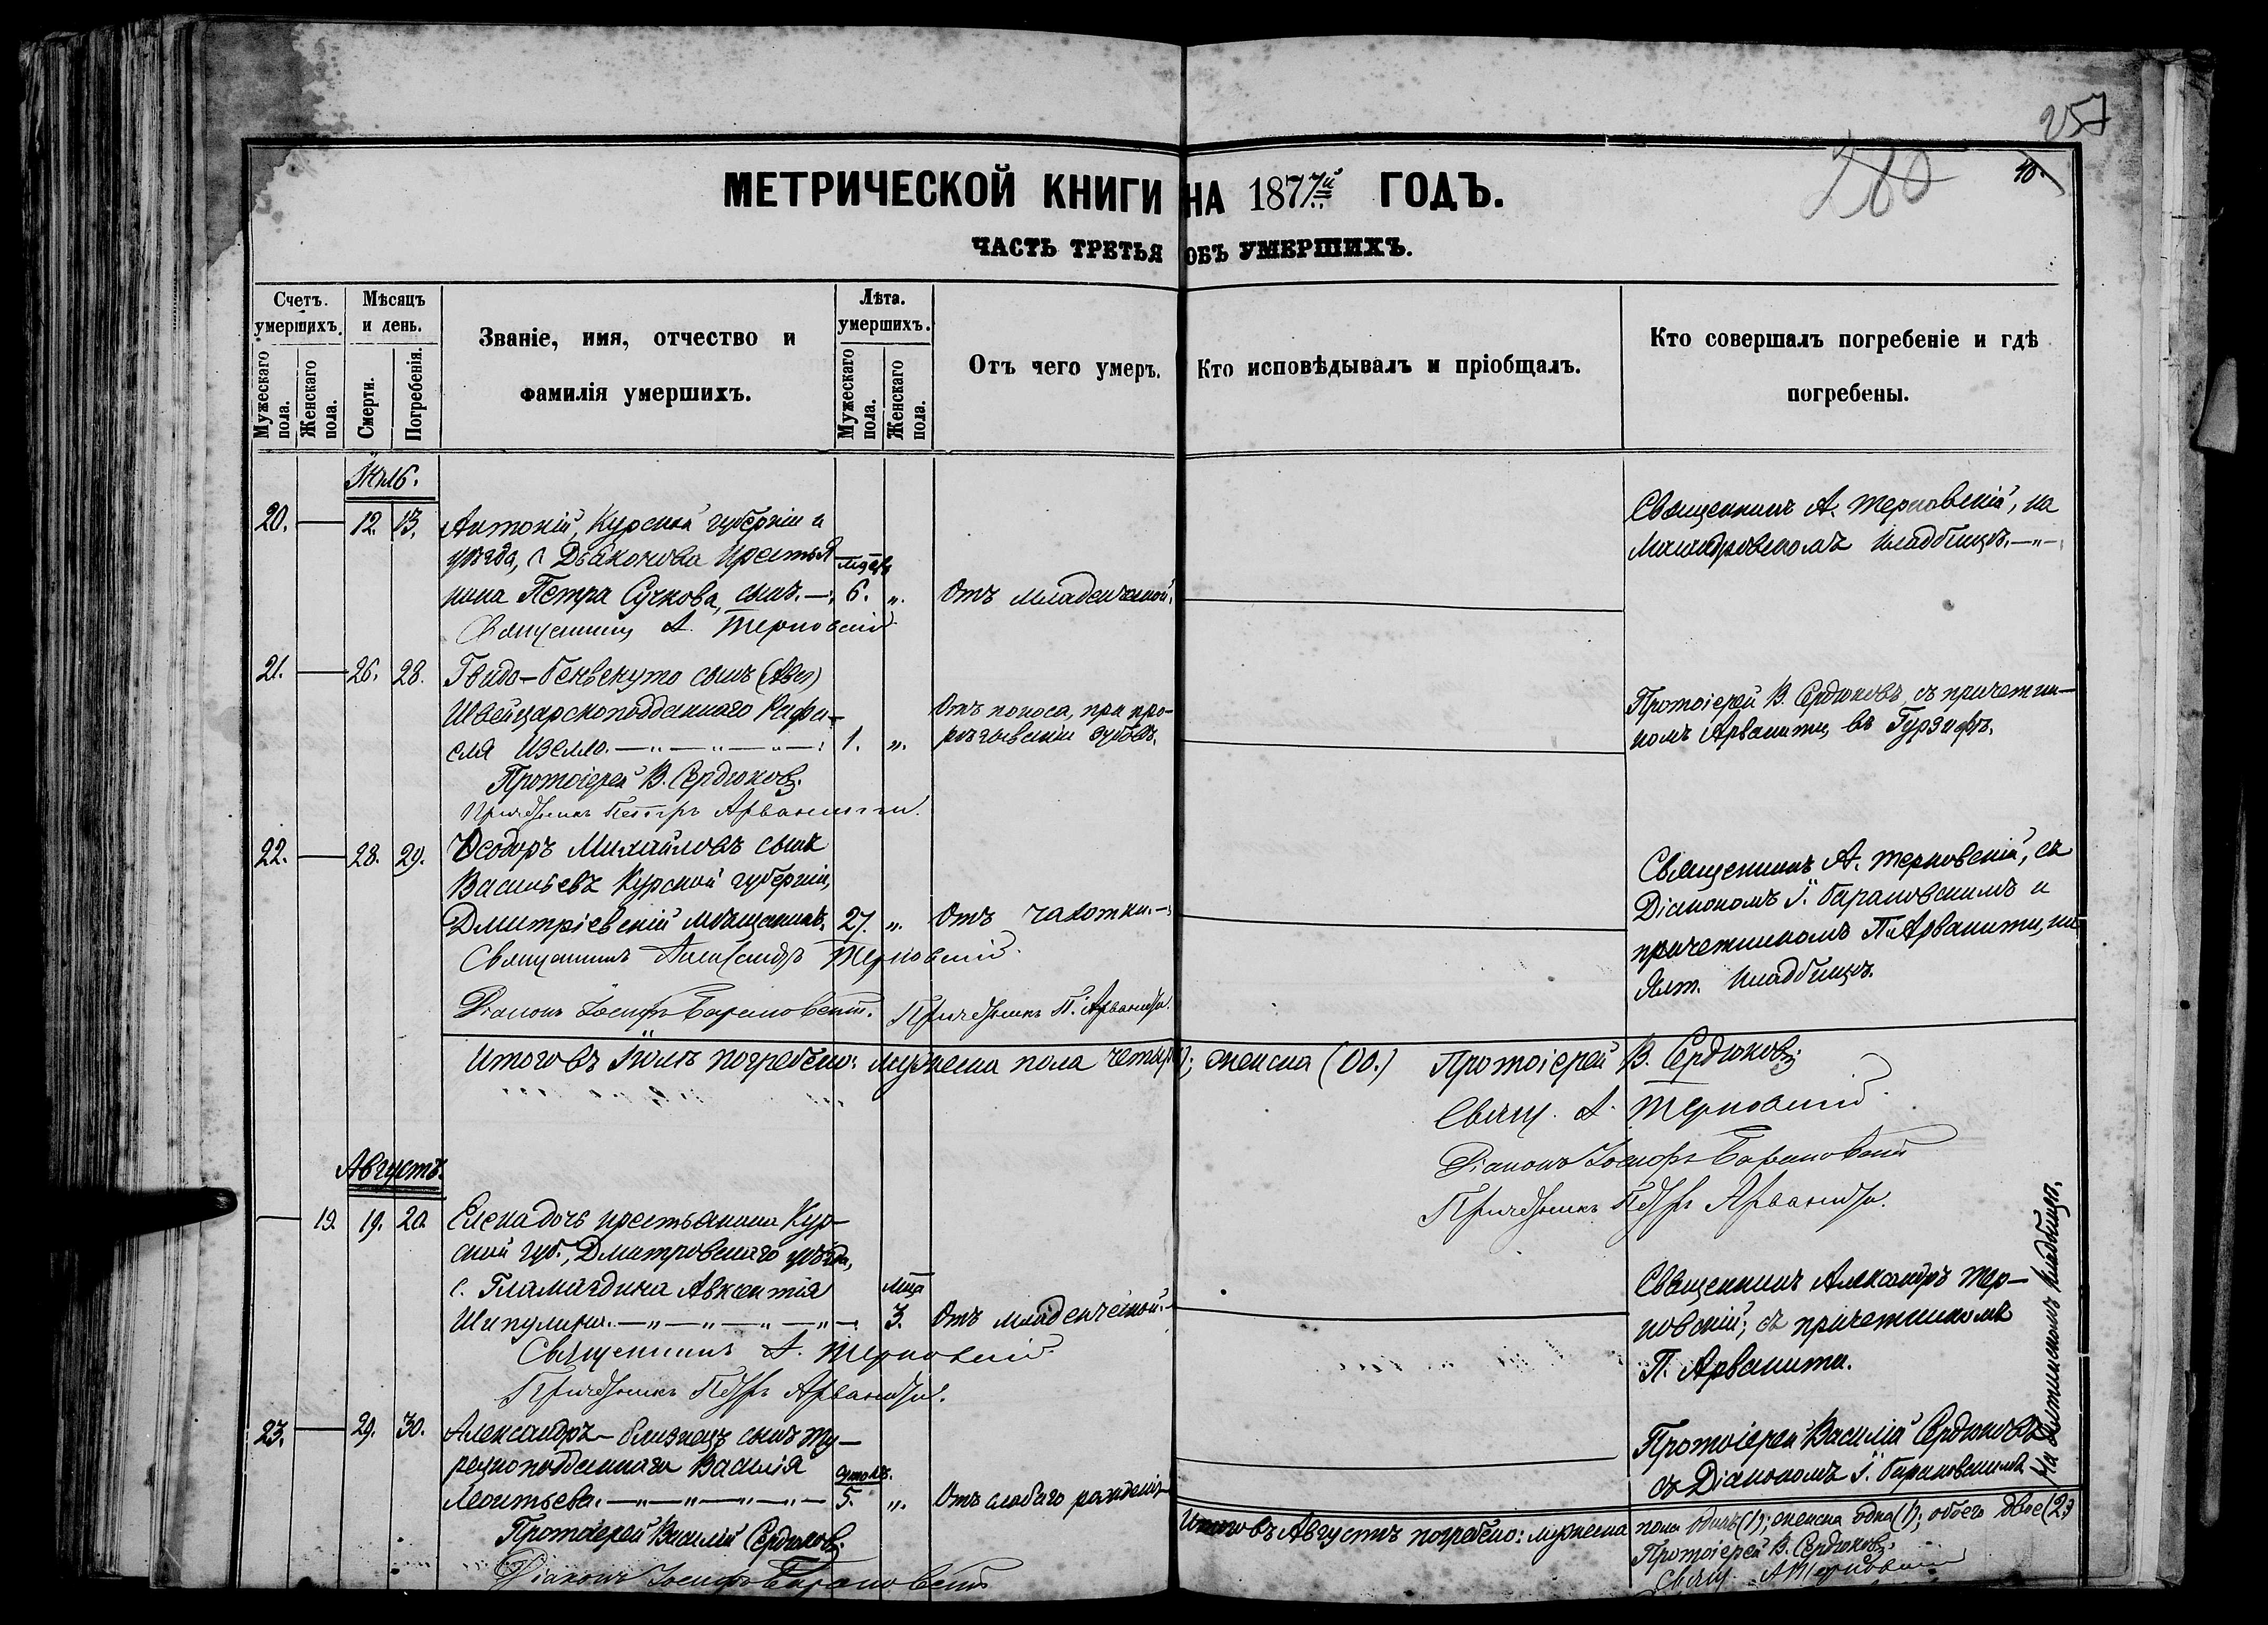 257
280
40.
МЕТРИЧЕСКОЙ КНИГИ НА 1877й ГОДЪ.
ЧАСТЬ ТРЕТЬЯ ОБЪ УМЕРШИХЪ.
Счетъ умершихъ.
Мѣсяцъ и день.
Званіе, имя, отчество и фамилія умершихъ.
Лѣта умершихъ.
Отъ чего умеръ.
Кто исповѣдывалъ и пріобщалъ.
Кто совершалъ погребеніе и гдѣ погребены.
Мужескаго пола.
Женскаго пола.
Смерти.
Погребенія.
Мужескаго пола.
Женскаго пола.
20. — 12. 13. Антоній, Курской губерніи и
уѣзда, с. Дьяконова крестья-
нина Петра Сучкова, сынъ. 6. „ Отъ младенческой.
Священникъ А. Терновскій
Священникъ А. Терновскій, на
кладбищѣ. — „ —
21. — 26. 28. Гвидо-Бенвенуто сынъ
Швейцарскоподданнаго Рафа-
еля Изелло. — „ — „ — „ — 1. „
Отъ поноса, при про-
рѣзываніи зубовъ.
Протоіерей В. Сердюковъ.
Причетникъ Петръ Арванити.
Протоіерей В. Сердюковъ, съ причетни-
комъ Арванити, въ Гурзуфѣ.
22. — 28. 29. Ѳеодоръ Михайловъ сынъ
Васильевъ Курской губерніи,
Дмитріевскій мѣщанинъ. 27. „ Отъ чахотки. —
Священникъ Александръ Терновскій.
Діаконъ Іосифъ Барановскій. Причетникъ П. Арванити.
Священникъ А. Терновскій, съ
Діакономъ І. Барановскимъ и
причетникомъ П. Арванити, на
Ялт. кладбищѣ.
Итого въ Іюлѣ погребено: мужеска пола четыре; женска (00.) Протоіерей В. Сердюковъ
Свящ. А. Терновскій.
Діаконъ Іосифъ Барановскій
Причетникъ Петръ Арванити.
Августъ.
— 19. 19. 20. Елена дочь крестьянина Кур-
ской губ., Дмитровскаго уѣзда,
с. Гламаздина Авксентія
Шипулина. — „ — „ — „ — „ — 3. Отъ младенческой. —
Священникъ А. Терновскій.
Причетникъ Петръ Арванити.
Священникъ Александръ Тер-
новскій; съ причетникомъ
П. Арванити.
23. — 29. 30. Александръ-близнецъ сынъ ту-
рецкоподданнаго Василія
Леонтьева. — „ — „ — „ — „ — 5. „ Отъ слабаго рожденія
сутокъ.
Протоіерей Василій Сердюковъ.
Діаконъ Іосифъ Барановскій
Протоіерей Василій Сердюковъ
съ Діакономъ І. Барановскимъ
На Ялтинскомъ кладбищѣ.
Итого въ Августѣ погребено: мужеска пола одинъ (1); женска одна (1); обоего двое (2)
Протоіерей В. Сердюковъ.
Свящ. А Терновскій